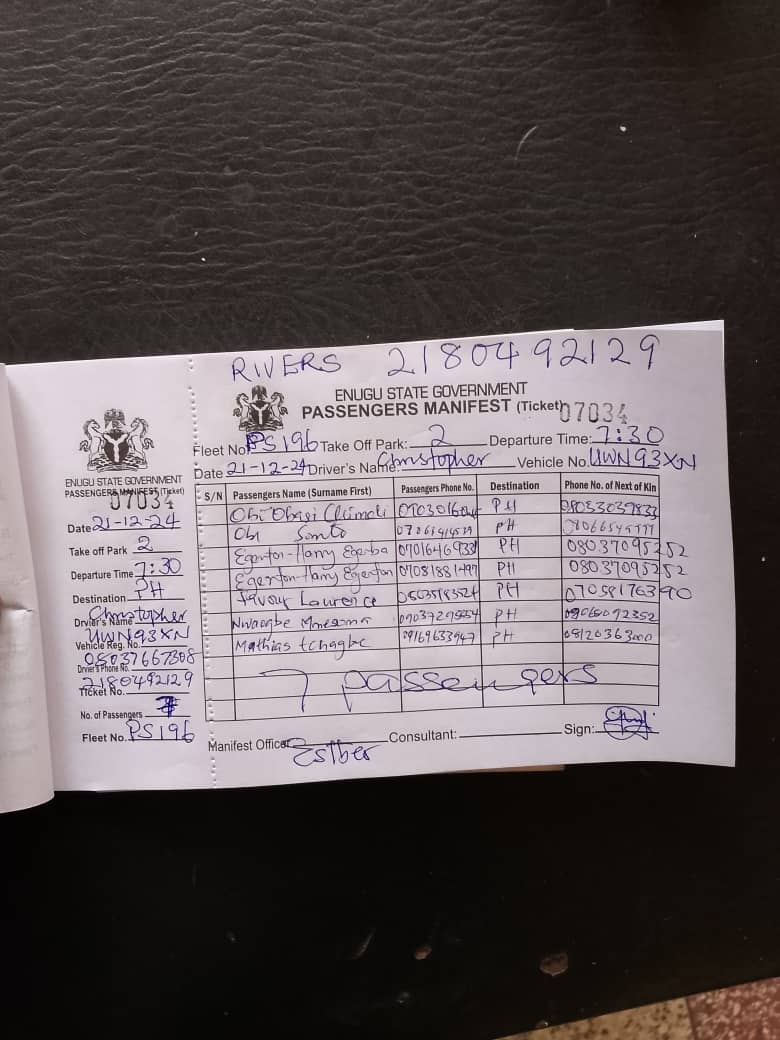 RIVERS 2180492129
ENUGU STATE GOVERNMENT
PASSENGERS MANIFEST (Ticket) 07034
Fleet No. PS196 Take Off Park: 2 Departure Time: 7:30
Date 21-12-24 Driver's Name: Christopher Vehicle No. UWN93XN
S/N Passengers Name (Surname First) Passengers Phone No. Destination Phone No. of Next of Kin
Obi Obasi PH
Obi PH
Egerton-Harry PH 08037095252
Egerton-Harry Egerton 07081881497 PH 08037095252
Favour Laurence PH 07058176390
PH
Mathias 09169633947 PH 08120363000
7 passengers
Manifest Officer Esther Consultant: Sign:
ENUGU STATE GOVERNMENT
PASSENGERS MANIFEST (Ticket)
07034
Date 21-12-24
Take off Park 2
Departure Time 7:30
Destination PH
Christopher
Drvier's Name
UWN93XN
Vehicle Reg. No.
08037667308
Drvier's Phone No.
2180492129
Ticket No.
No. of Passengers 7
Fleet No. PS196